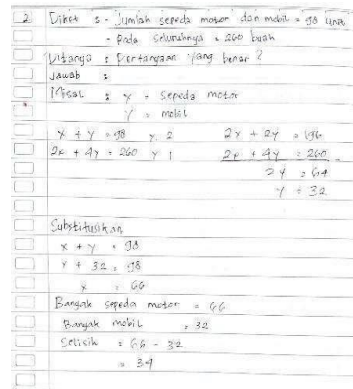 2 Diket : - Jumlah sepeda motor dan mobil = 98 unit
- Roda seluruhnya = 260 buah
Ditanya : Pertanyaan yang benar ?
Jawab :
Misal : x = Sepeda motor
y = mobil
x + y = 98 x 2 2x + 2y = 196
2x + 4y = 260 x 1 2x + 4y = 260 -
2y = 64
y = 32
Substitusikan
x + y = 98
x + 32 = 98
x = 66
Banyak sepeda motor = 66
Banyak mobil = 32
Selisih = 66 - 32
= 34